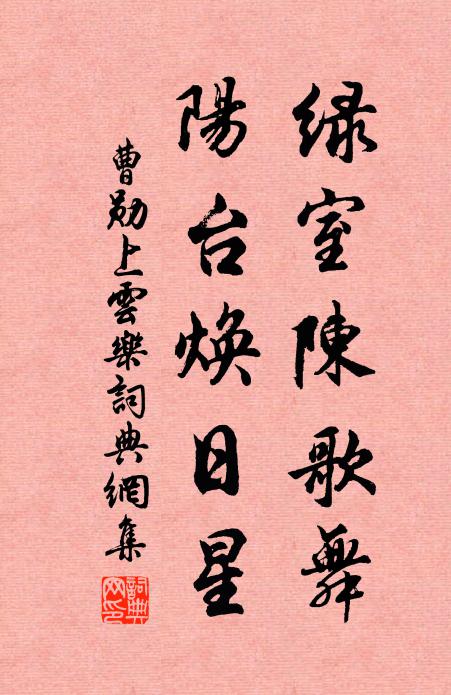 绿室陳歌舞
陽台焕日星
曹勛上雲樂詞典網集
詞典網印